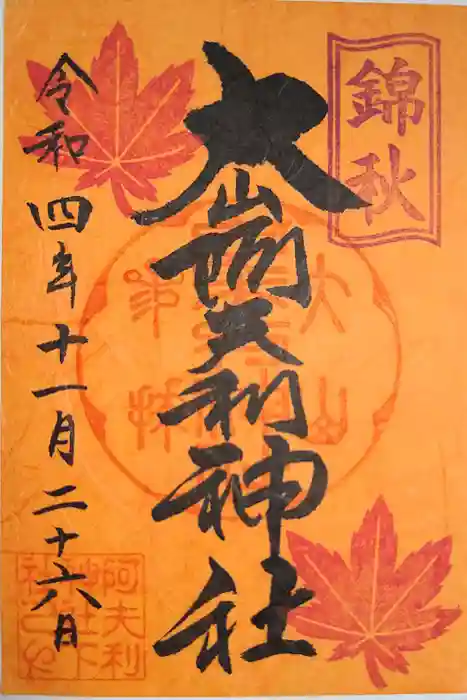 錦秋
大山阿夫利神社
令和四年十一月二十六日
阿夫利
神社下